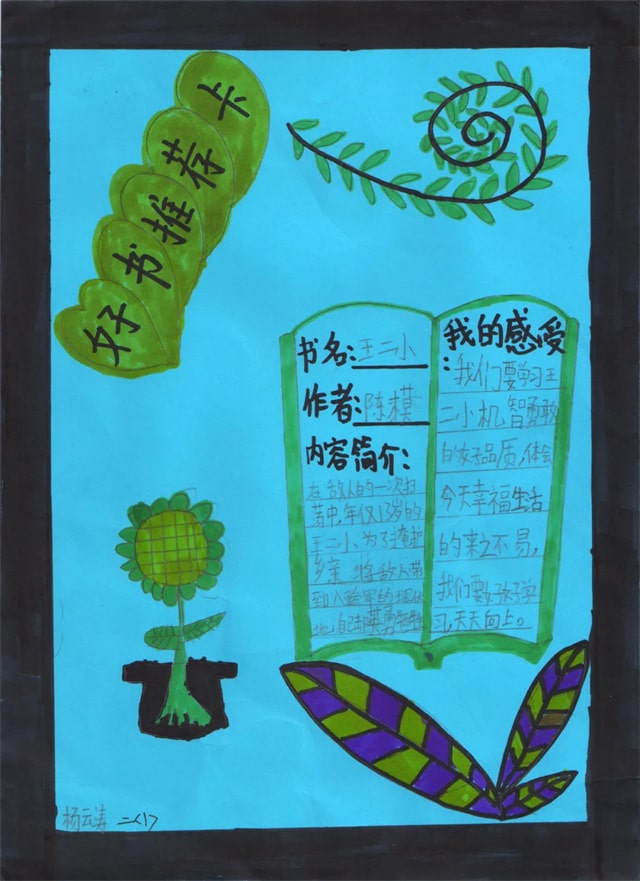 好书推荐卡
书名:王二小
作者:陈模
内容简介:
在敌人的一次扫
荡中,年仅13岁的
王二小,为了掩护
乡亲,将敌人带
到八路军的埋伏
地,自己却英勇牺牲
我的感受
:我们要学习王
二小机智勇敢
的好品质,体会
今天幸福生活
的来之不易,
我们要好好学
习,天天向上。
杨云涛 二(1)